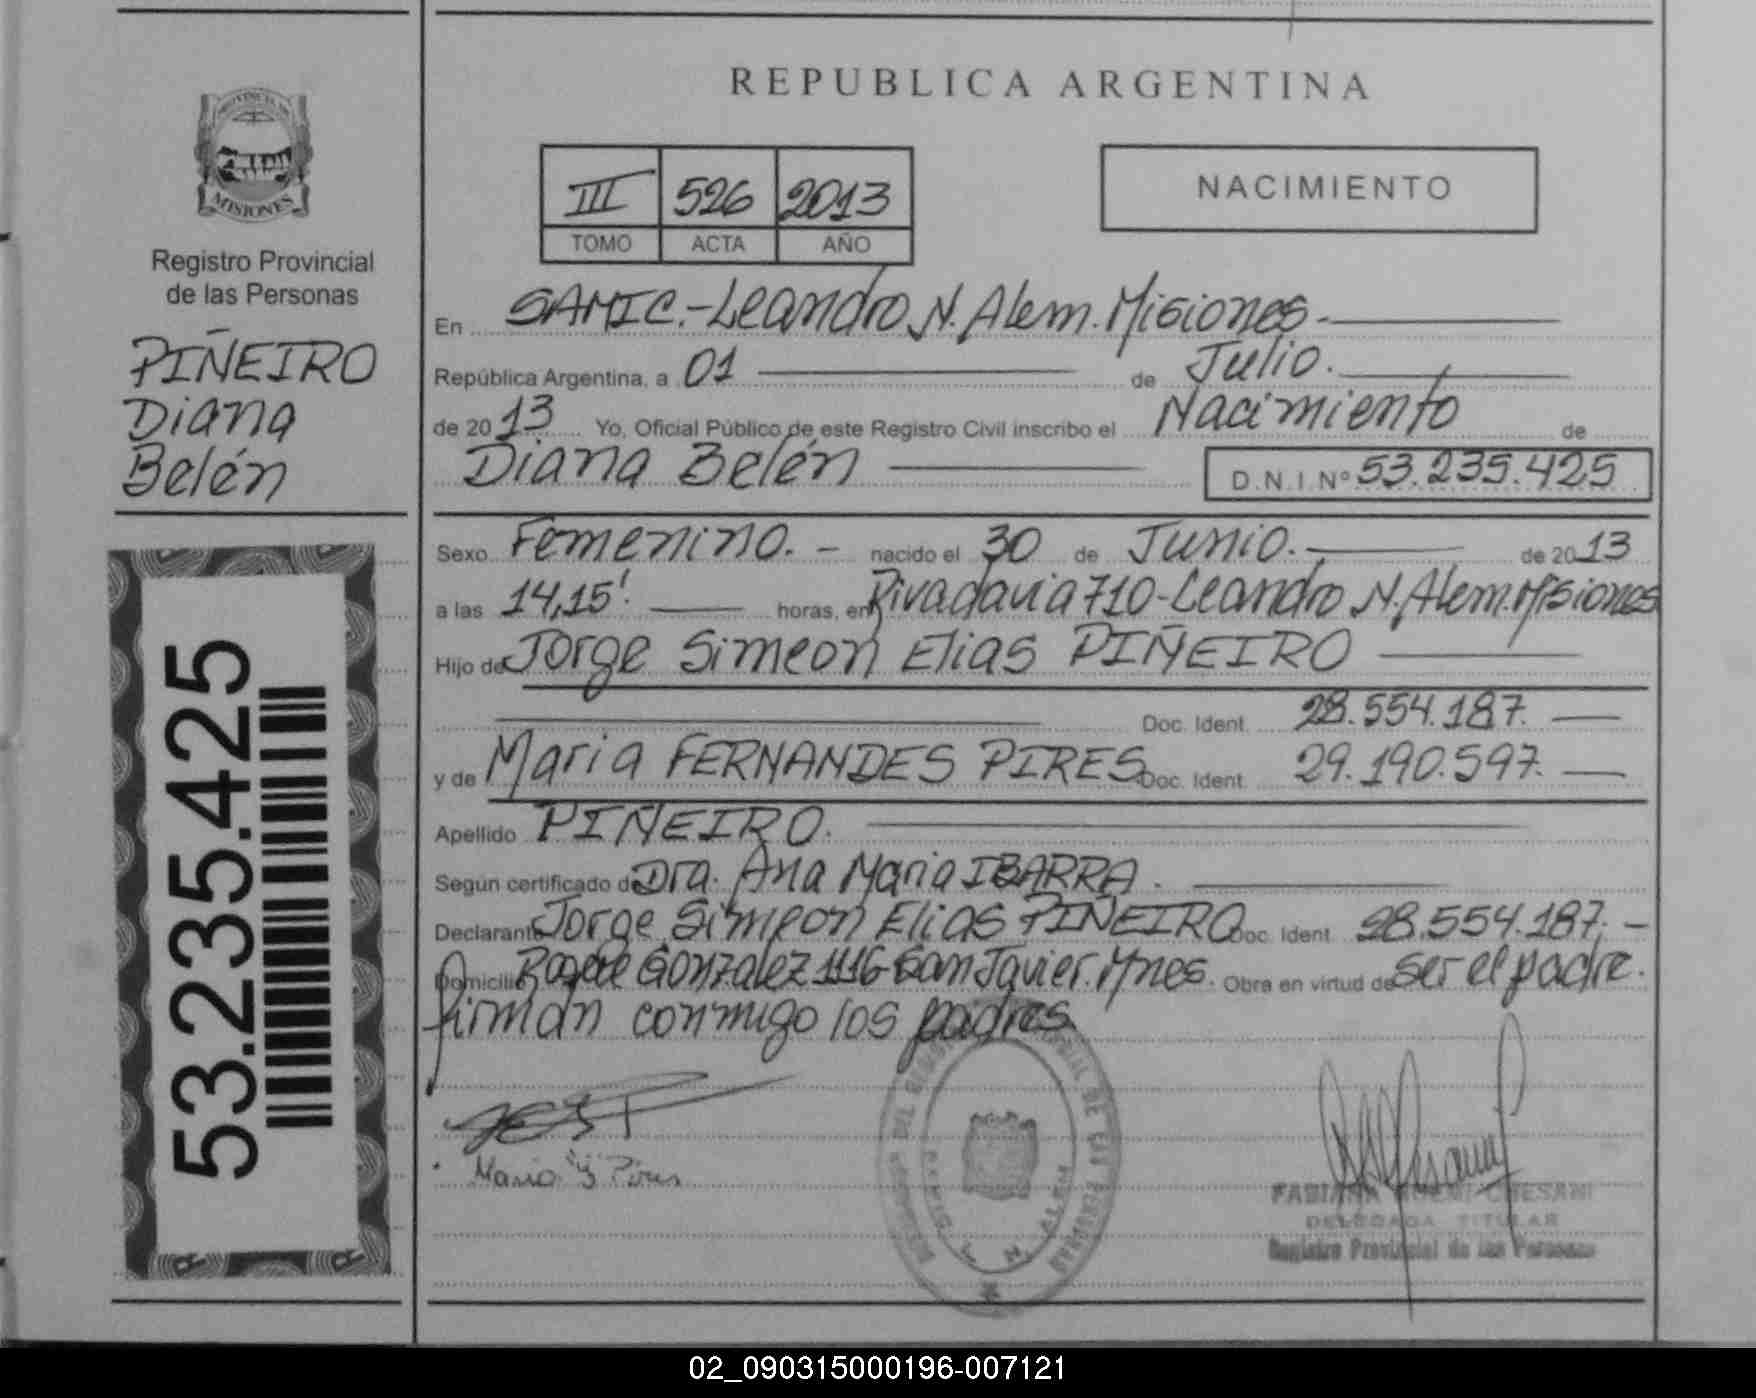 REPUBLICA ARGENTINA
PROVINCIA DE
MISIONES
Registro Provincial
de las Personas
PIÑEIRO
Diana
Belén
53.235.425
III 526 2013
TOMO ACTA AÑO
NACIMIENTO
En SAMIC.-Leandro N. Alem. Misiones.
República Argentina, a 01 de Julio.
de 2013 Yo, Oficial Público de este Registro Civil inscribo el Nacimiento de
Diana Belén D.N.I.Nº 53.235.425
Sexo Femenino. - nacido el 30 de Junio. de 2013
a las 14,15'. horas, en Rivadavia 710-Leandro N. Alem. Misiones
Hijo de Jorge Simeon Elias PIÑEIRO
Doc. Ident. 28.554.187.
y de Maria FERNANDES PIRES Doc. Ident. 29.190.597.
Apellido PIÑEIRO.
Según certificado de Dra. Ana Maria IBARRA.
Declarante Jorge Simeon Elias PIÑEIRO Doc. Ident. 28.554.187. -
Domicilio Gonzalez 1116-San Javier. Mnes. Obra en virtud de ser el padre.
firman conmigo los padres
Maria Pires
FABIANA NOEMI CHESANI
DELEGADA TITULAR
Registro Provincial de las Personas
02_090315000196-007121